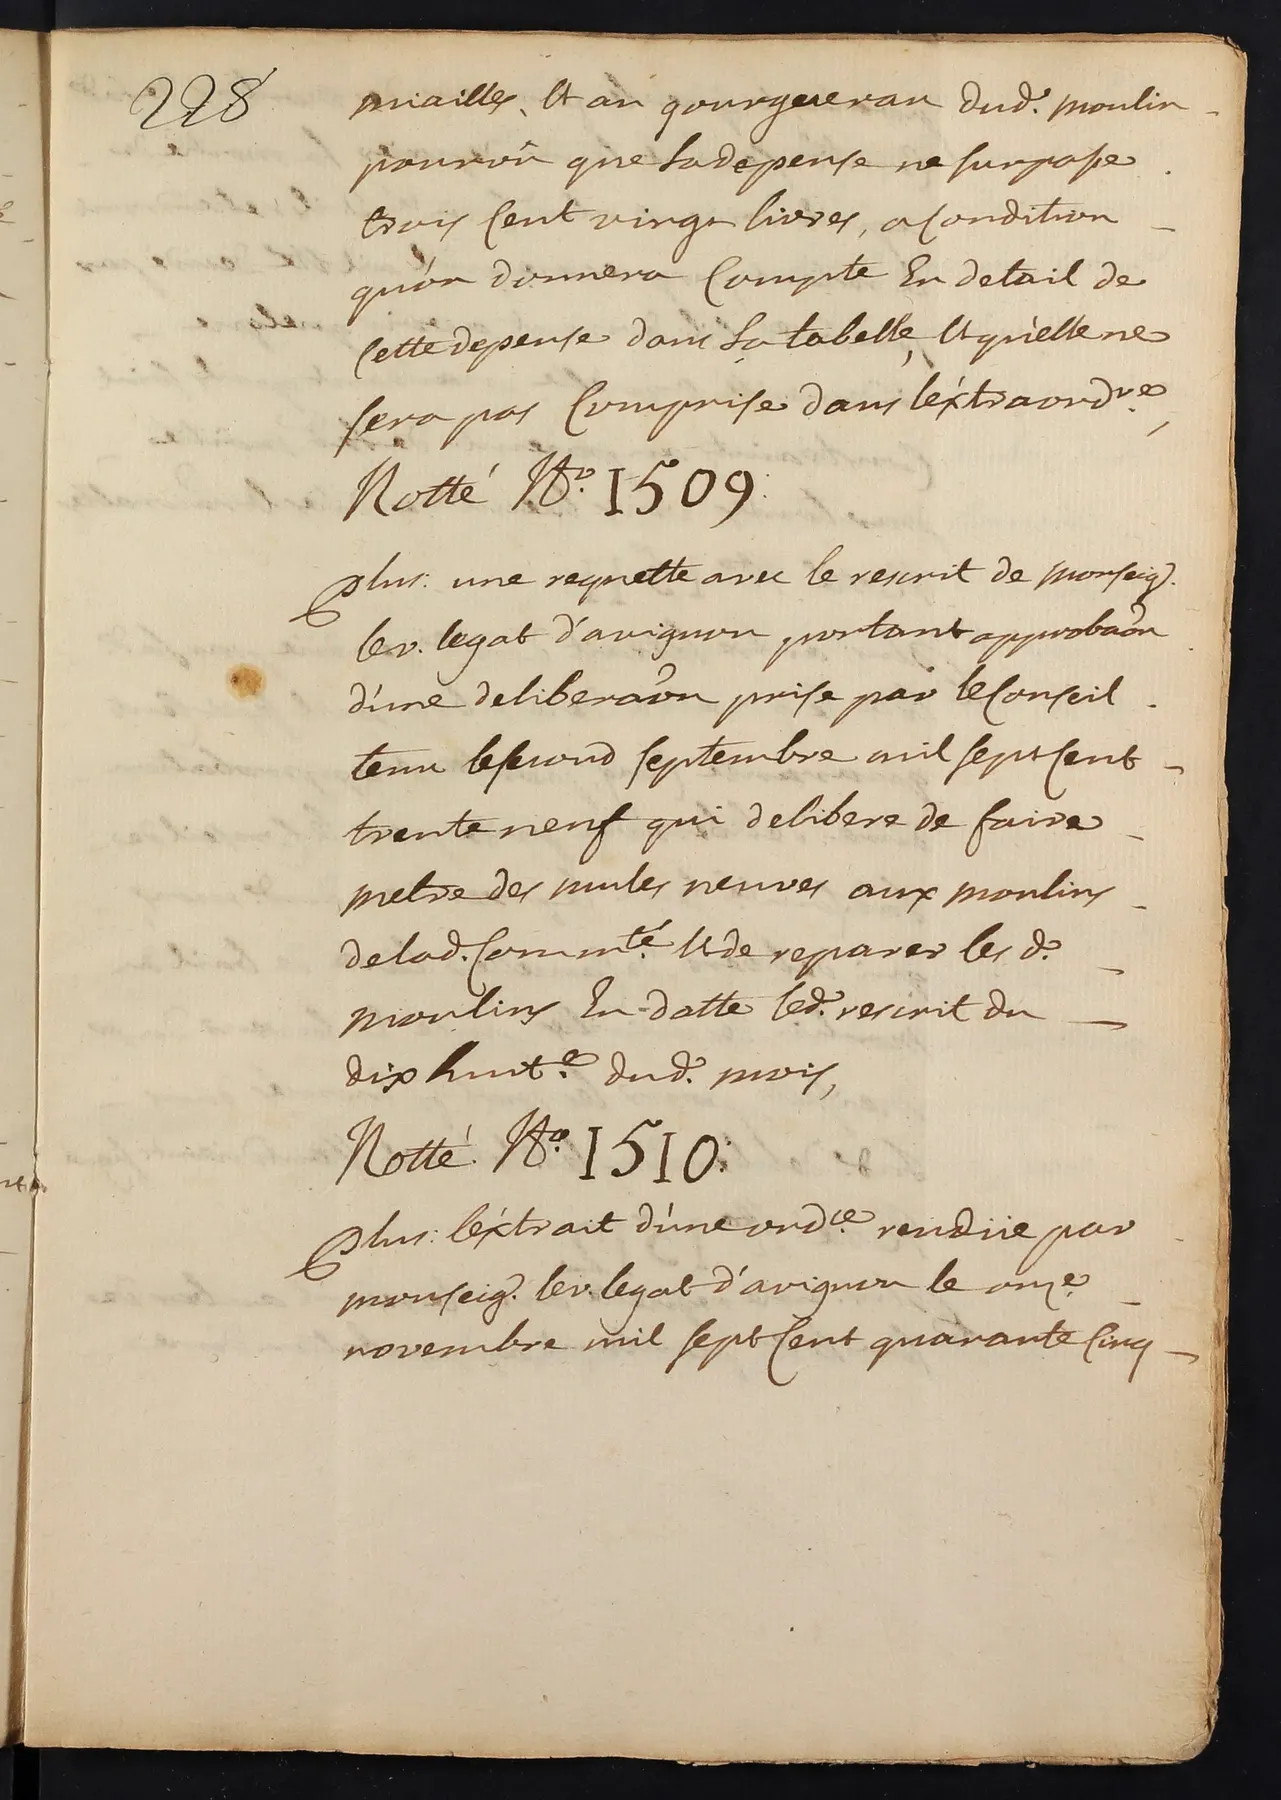 228
miailles, et au gourgueran dud. moulin
pourvû que la depense ne surpasse
trois cent vingt livres, a condition
qu'on donnera compte en detail de
cette depense dans la tabelle, et qu'elle ne
sera pas comprise dans l'éxtraordre,
Notté No. 1509.
plus: une requette avec le rescrit de monseigr.
le v. legat d'avignon portant approbaôn
d'une deliberaôn prise par le conseil
tenu le second septembre mil sept cent
trente neuf qui delibere de faire
metre des mules neuves aux moulins
de lad. commté. et de reparer les d.
moulins en datte led. rescrit du
dix huite. dud. mois,
Notté No. 1510.
plus: l'éxtrait d'une ordce. rendüe par
monseigr. le v. legat d'avignon le onze.
novembre mil sept cent quarante cinq